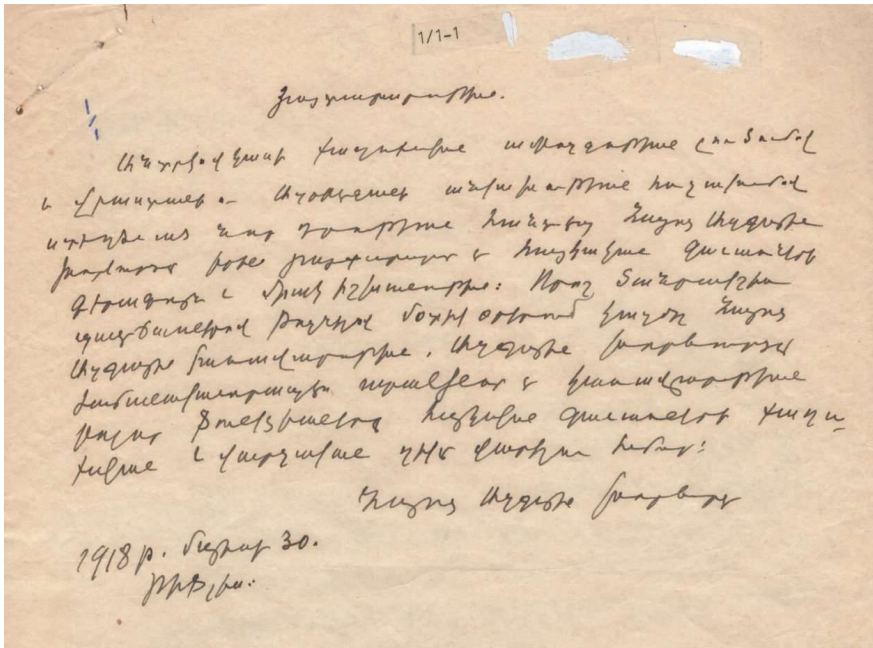 Յայտարարութիւն.
1/1-1
Անդրկովկասի քաղաքական ամբողջութեան լուծումով
և Վրաստանի ու Ադրբեջանի անկախութեան հռչակումով
ստեղծւած նոր դրութեան հանդէպ Հայոց Ազգային
Խորհուրդը իրեն յայտարարում է հայկական գաւառների
գերագոյն և միակ իշխանութիւն։ Որոշ ծանրակշիռ
պատճառներով թողնելով մօտիկ օրերում կազմել Հայոց
Ազգային կառավարութիւն, Ազգային Խորհուրդը
ժամանակաւորապէս ստանձնում է կառավարութեան
բոլոր ֆունկցիաները հայկական գաւառների քաղա-
քական և վարչական ղեկը վարելու համար։
Հայոց Ազգային Խորհուրդ
1918 թ. մայիսի 30.
Թիֆլիս։